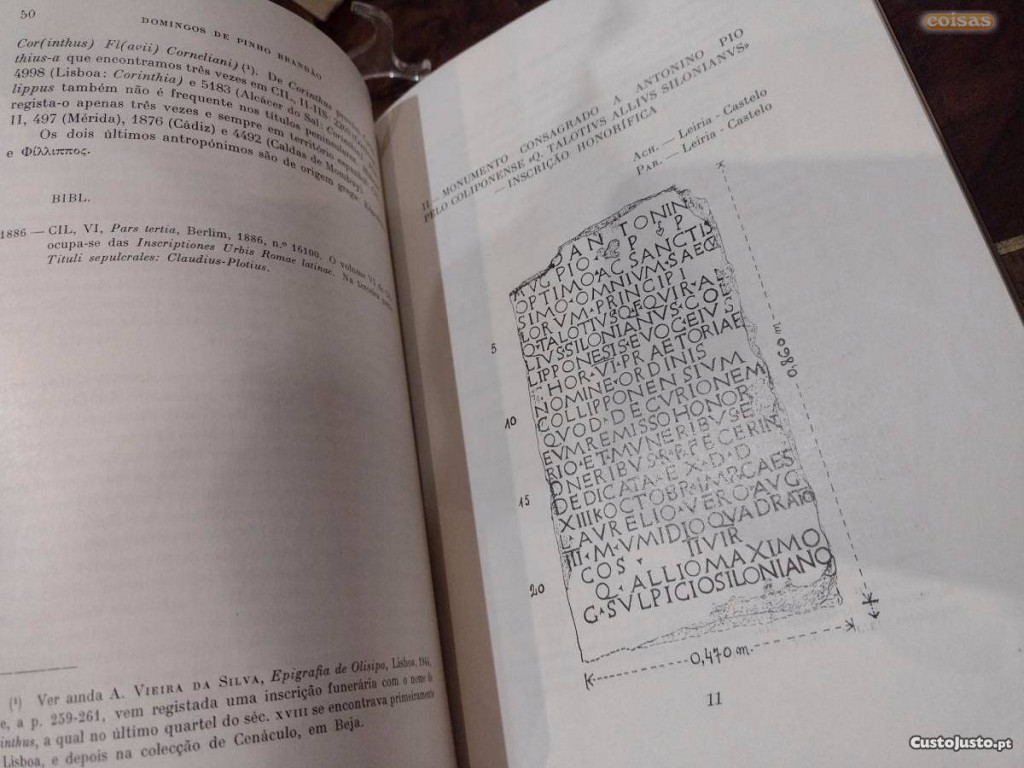 50
DOMINGOS DE PINHO BRANDÃO
Cor(inthus) Fl(avii) Corneliani) (¹). De Corinthus
thius-a que encontramos três vezes em CIL, II-IIS:
4998 (Lisboa: Corinthia) e 5183 (Alcácer do Sal:
lippus também não é frequente nos títulos peninsulares.
regista-o apenas três vezes e sempre em território
II, 497 (Mérida), 1876 (Cádiz) e 4492 (Caldas de
Os dois últimos antropónimos são de origem grega.
e Φίλλιππος.
BIBL.
1886 — CIL, VI, Pars tertia, Berlim, 1886, n.º 16100. O volume VI
ocupa-se das Inscriptiones Urbis Romae latinae. Na
Tituli sepulcrales: Claudius-Plotius.
(¹) Ver ainda A. VIEIRA DA SILVA, Epigrafia de Olisipo, Lisboa, 1944,
e, a p. 259-261, vem registada uma inscrição funerária com o nome de
inthus, a qual no último quartel do séc. XVIII se encontrava primeiramente
Lisboa, e depois na colecção de Cenáculo, em Beja.
II — MONUMENTO CONSAGRADO A ANTONINO PIO
PELO COLIPONENSE «Q. TALOTIVS ALLIVS SILONIANVS»
— INSCRIÇÃO HONORÍFICA
ACH. — Leiria - Castelo
PAR. — Leiria - Castelo
ANTONIN
AVG PIO P P
OPTIMO AC SANCTIS
SIMO OMNIVM SAEC
LORVM PRINCIPI
5
Q TALOTIVS Q F QVIR AL
LIVS SILONIANVS COL
LIPPONESIS EVOC EIVS
CHOR VI PRAETORIAE
NOMINE ORDINIS
10
COLLIPPONENSIVM
QVOD DECVRIONEM
EVM REMISSO HONOR
RIO ET MVNERIBVS E
ONERIBVS R P FECERIN
15
DEDICATA EX D D
XIIII K OCTOBR IMP CAES
L AVRELIO VERO AVG
III M VMIDIO QVADRATO
COS IIVIR
20
Q ALLIO MAXIMO
G SVLPICIO SILONIANO
0,980 m
0,470 m.
11
coisas
CustoJusto.pt